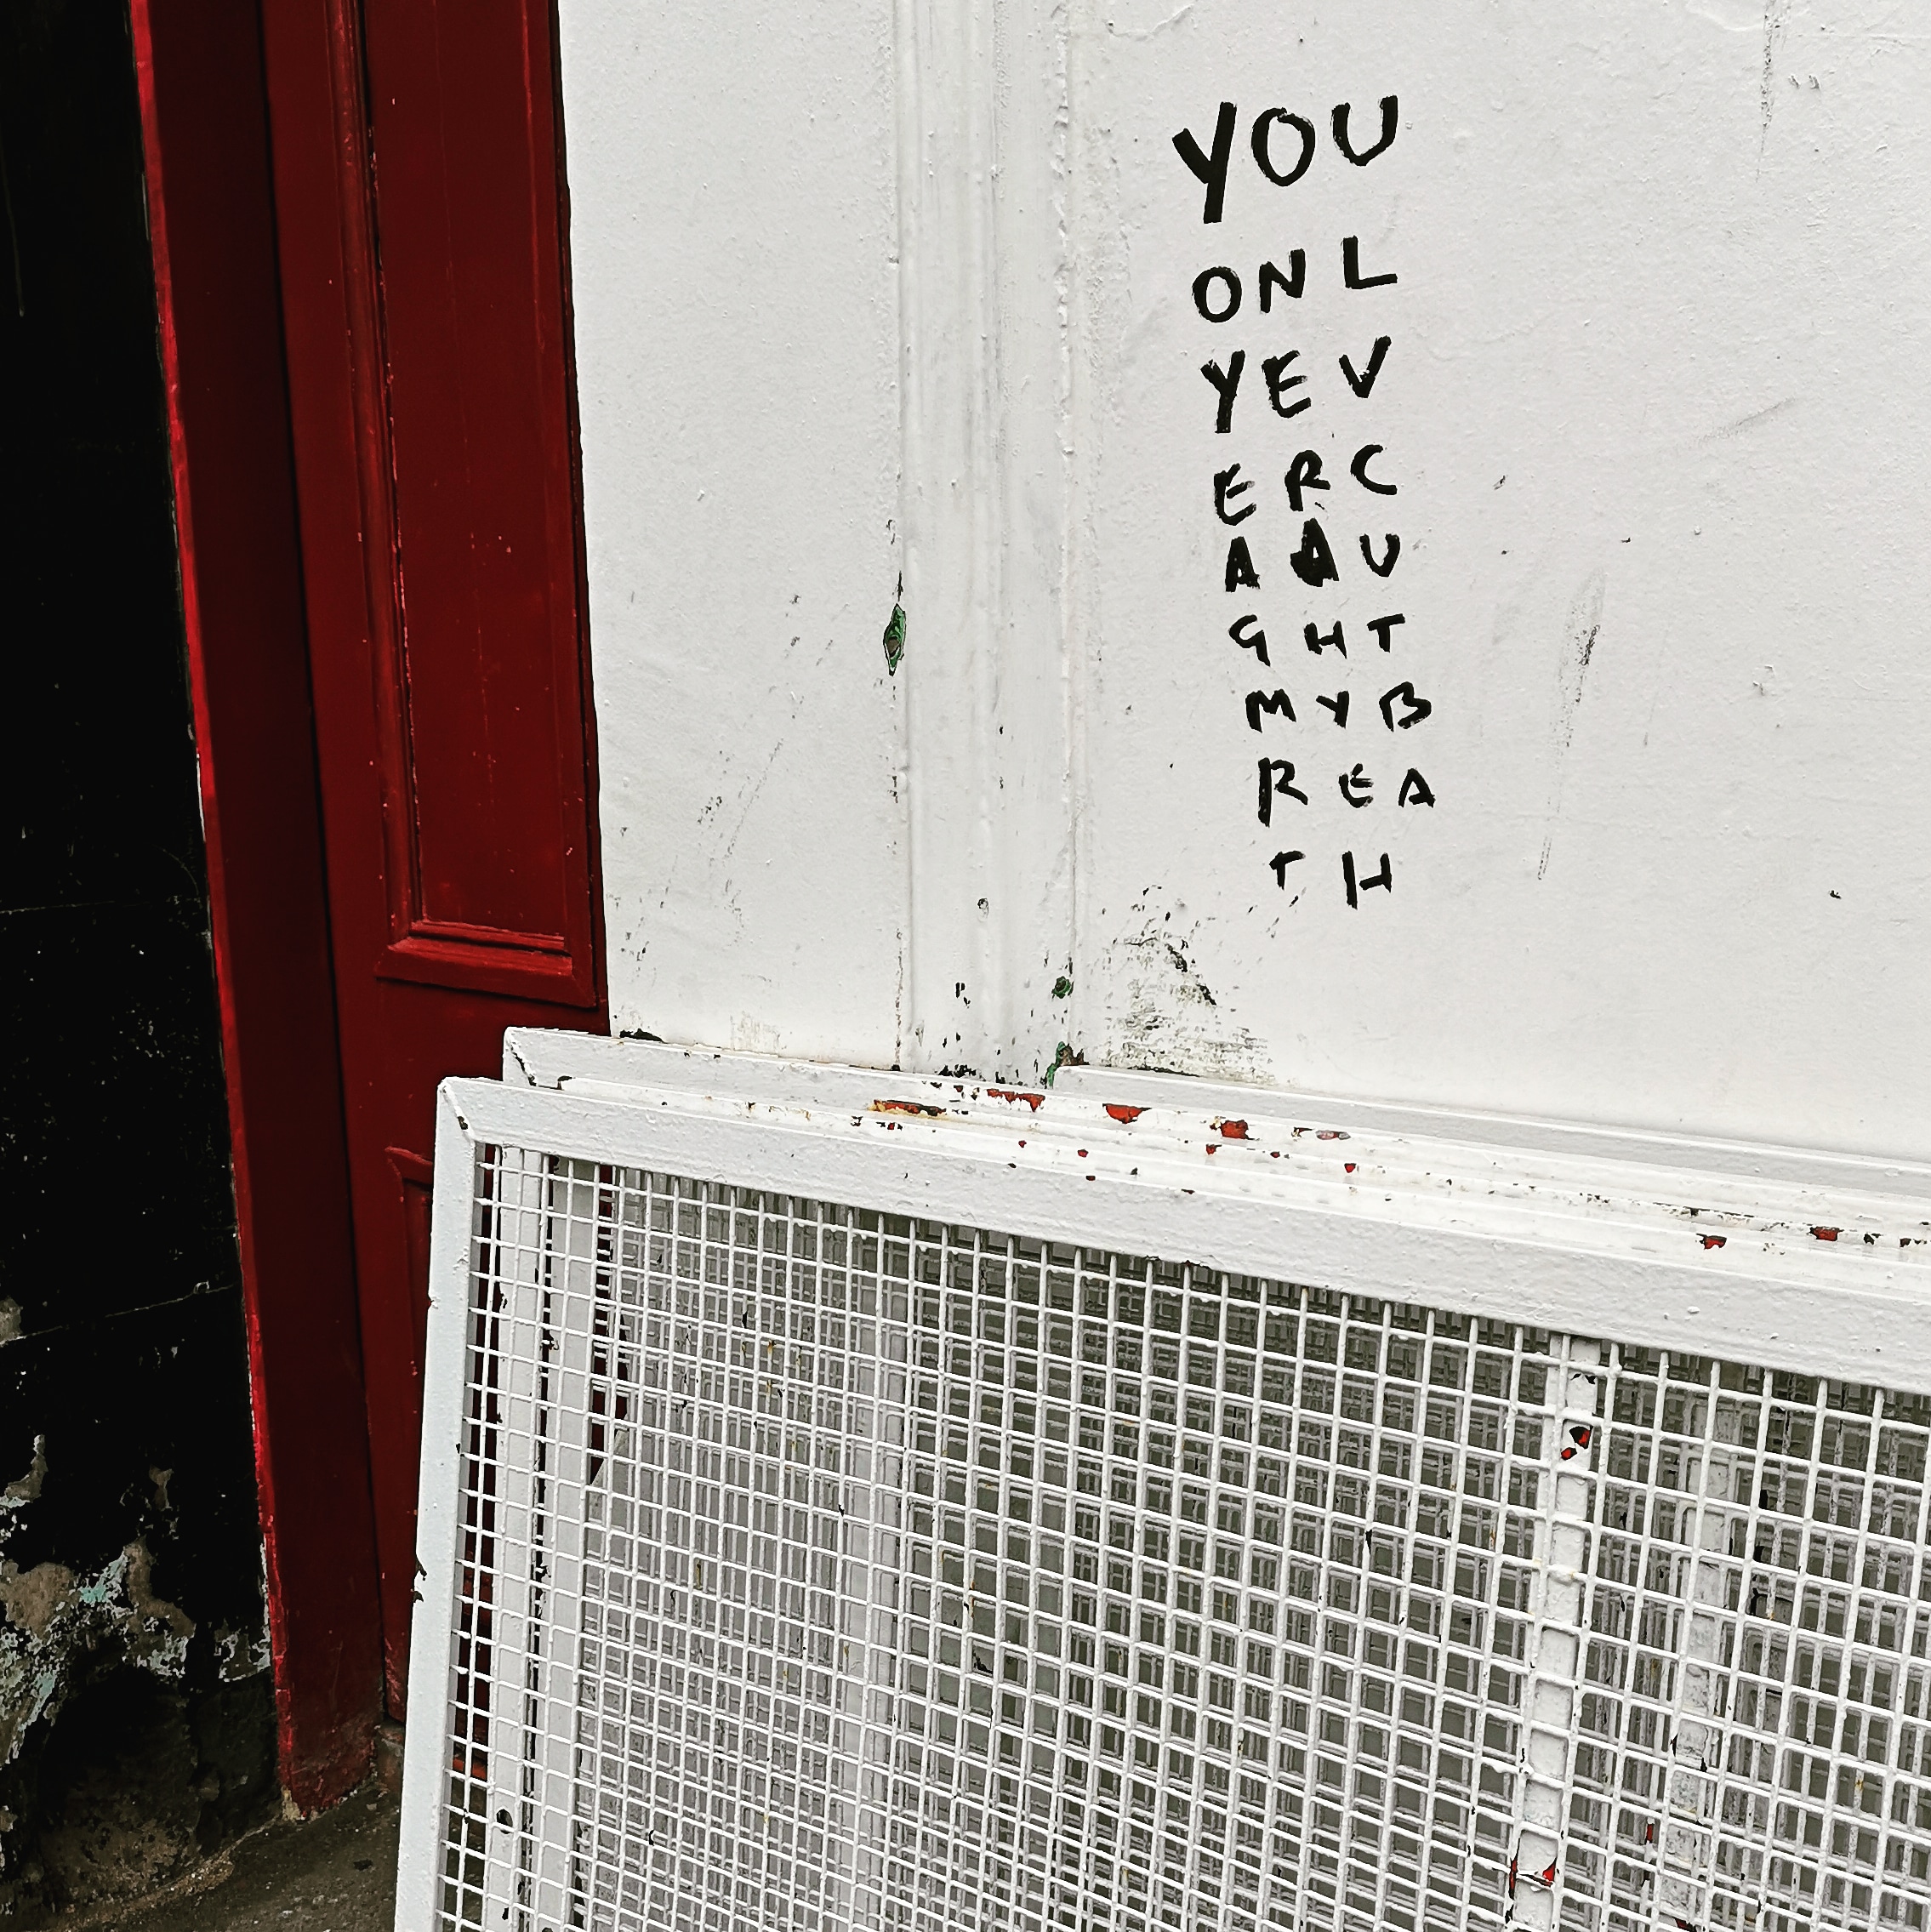 YOU
ONL
YEV
ERC
AAU
GHT
MYB
REA
TH